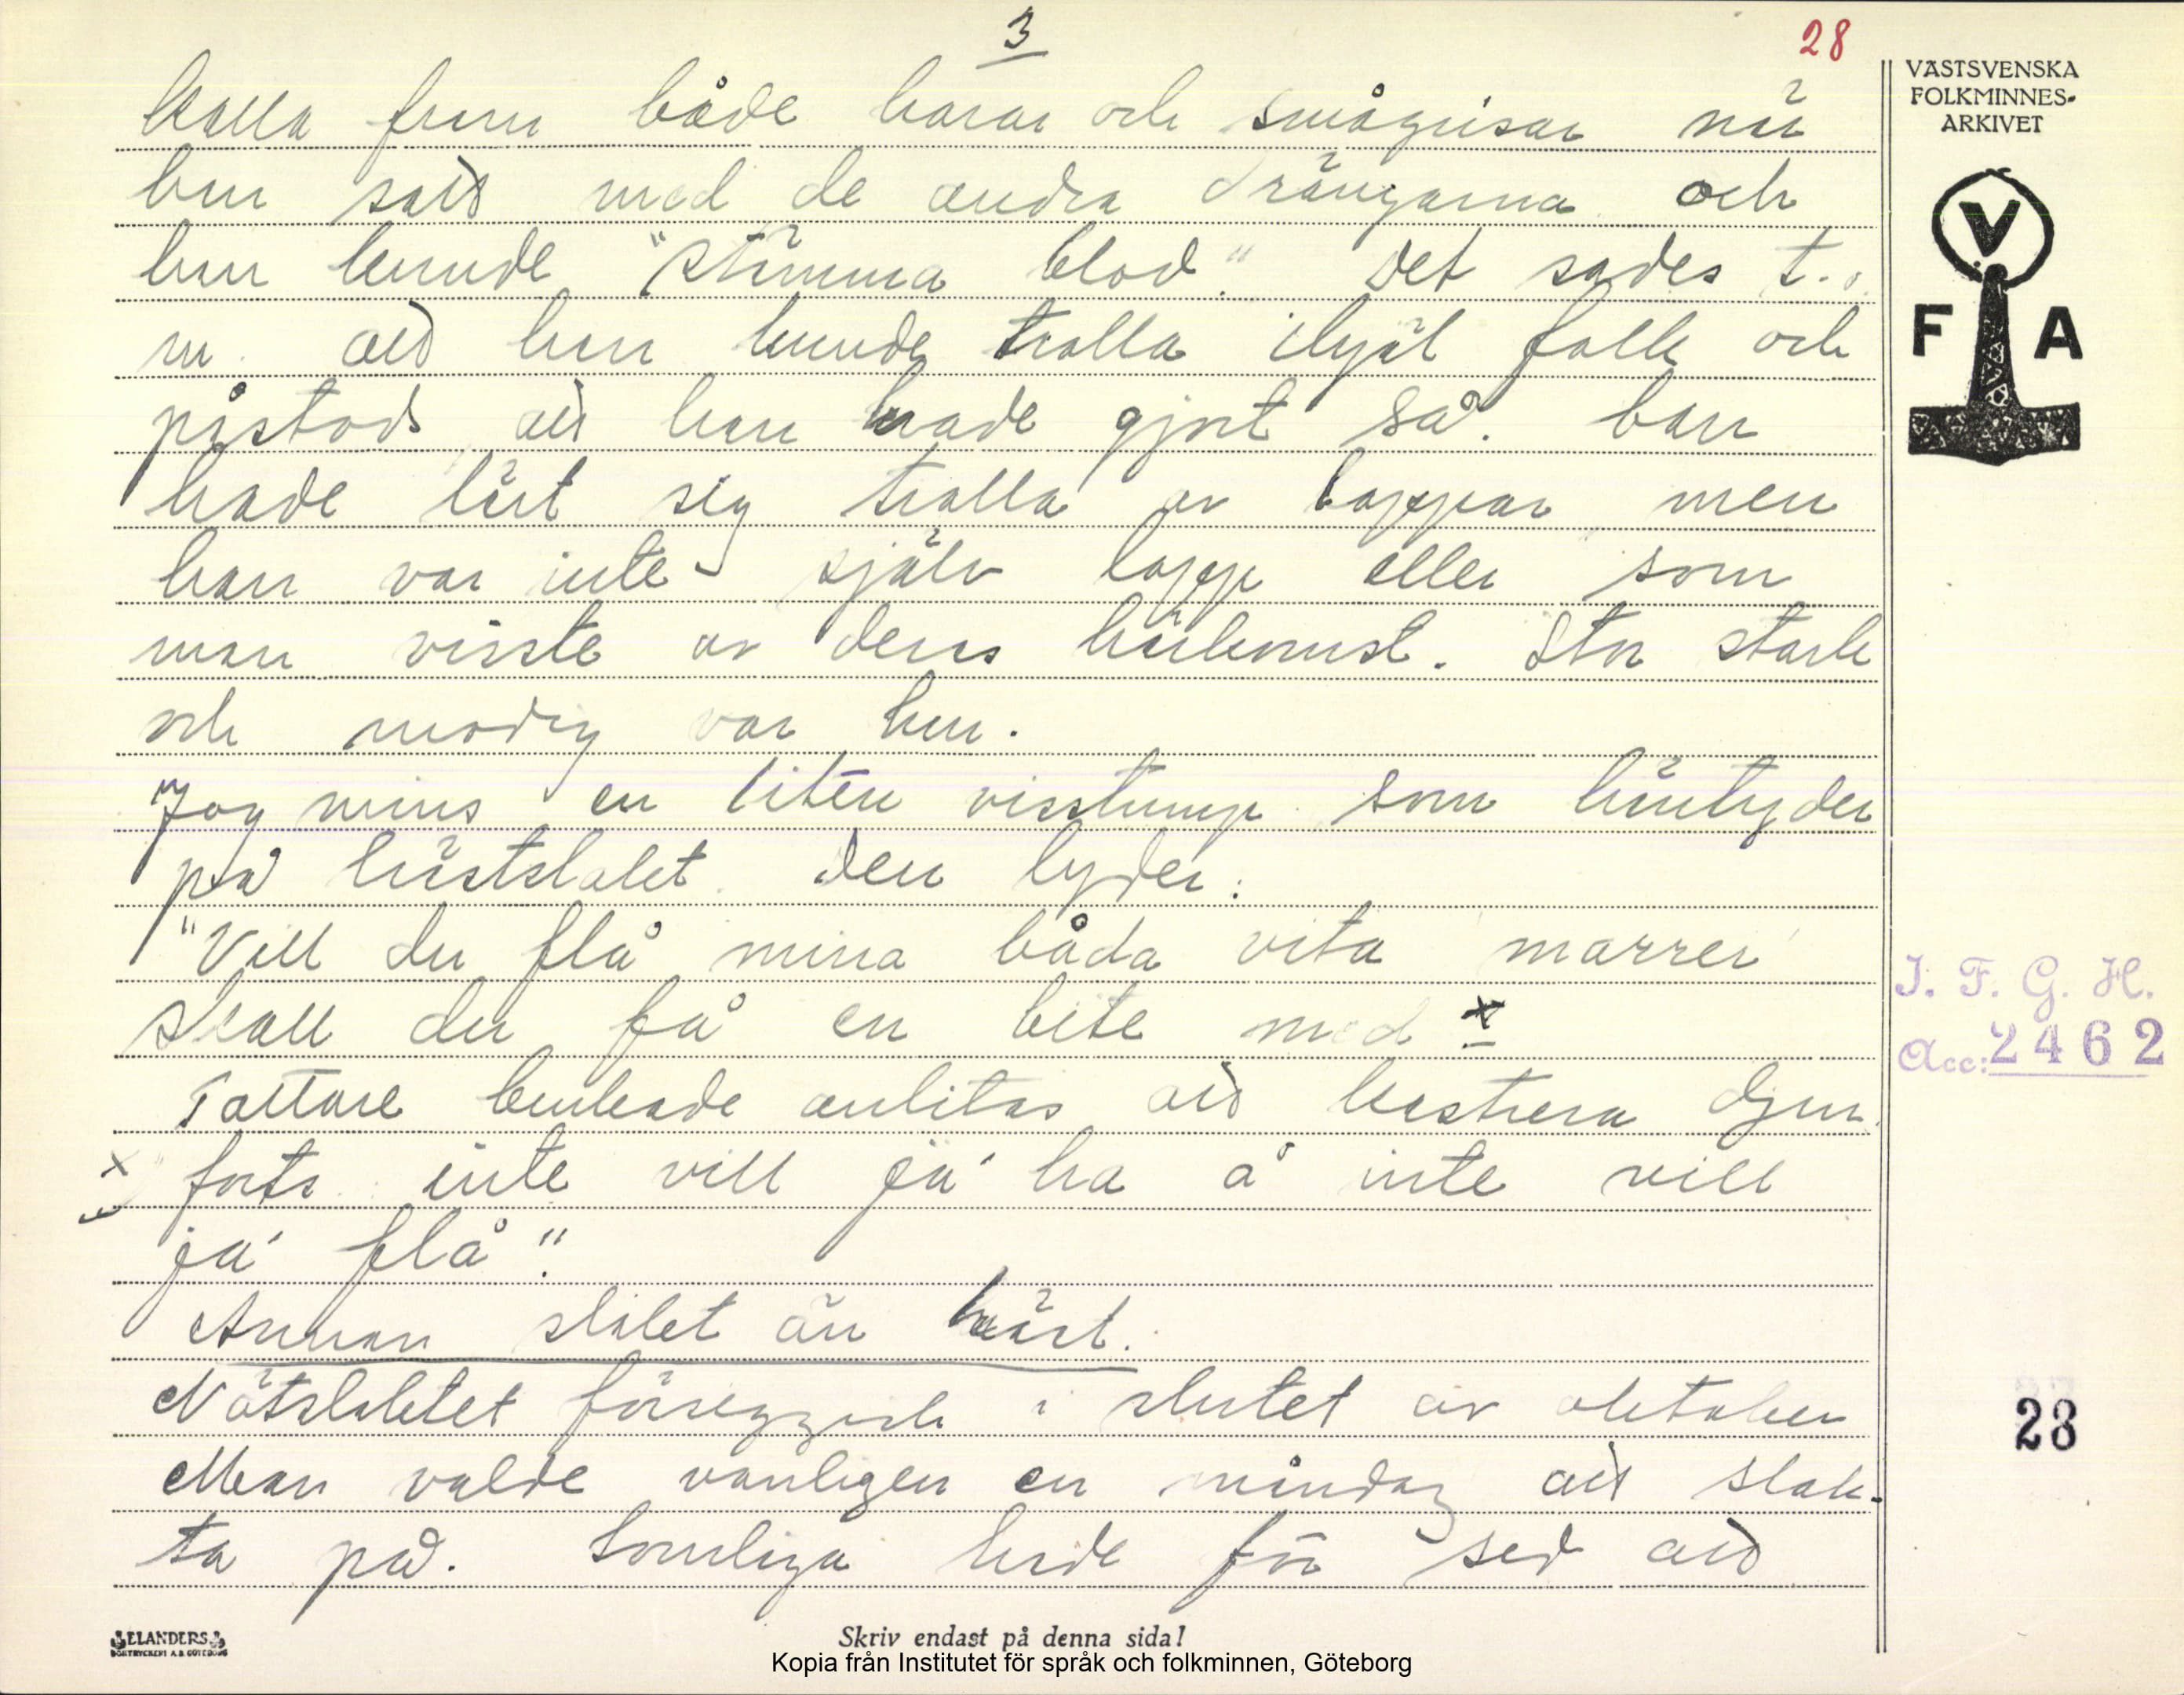 3
28
kalla fram både harar och smågrisar när
han satt med de andra drängarna och
han kunde "stämma blod." Det sades t.o.
m. att han kunde trolla ihjäl folk och
påstods att han hade gjort så. han
hade lärt sig trolla av lappar men
han var inte själv lapp eller som
man visste av deras härkomst. Stor stark
och modig var han.
Jag mins en liten visstump som häntyder
på hästslakt. Den lyder:
"Vill du flå mina båda vita märrer
skall du få en bite med x
Tattare brukade anlitas att kastrera djur.
x forts. inte vill ja' ha å inte vill
ja' flå".
Annan slakt än häst.
Nötslaktet försiggick i slutet av oktober
Man valde vanligen en måndag att slak-
ta på. Somliga hade för sed att
VÄSTSVENSKA
FOLKMINNES-
ARKIVET
V
F A
I. F. G. H.
Acc: 2462
28
ELANDERS
BOKTRYCKERI A.B. GÖTEBORG
Skriv endast på denna sida!
Kopia från Institutet för språk och folkminnen, Göteborg